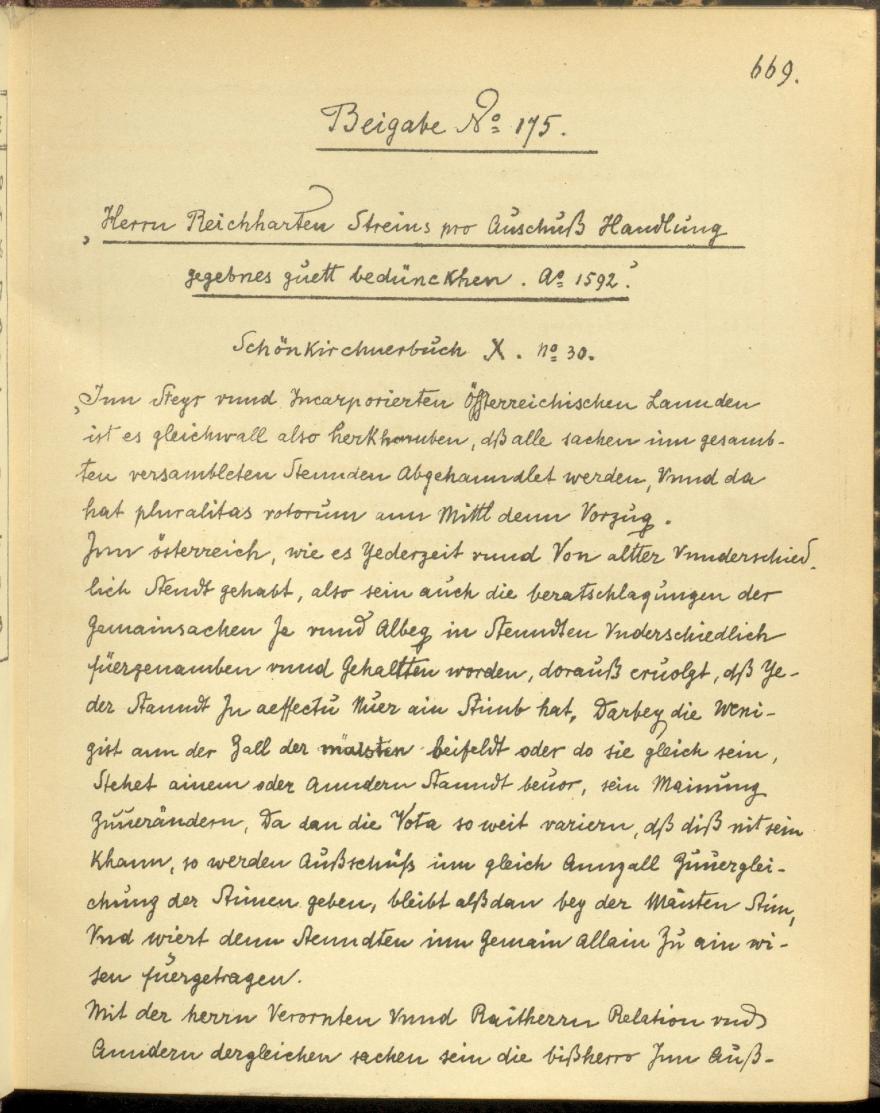 669.
Beigabe Nº 175.
„Herrn Reichharten Streins pro Auschuß Handlung
gegebnes guett bedünckhen. Aº 1592.“
Schönkirchnerbuch X. nº 30.
„Inn Steyr vnnd Incarporierten Österreichischen Lannden
ist es gleichwall also herkhomben, dß alle sachen inn gesamb-
ten versambleten Stennden Abgehanndlet werden, Vnnd da
hat pluralitas votorum ann Mittl denn Vorzug.
Inn österreich, wie es Yederzeit vnnd Von altter Vnnderschied-
lich Stendt gehabt, also sein auch die beratschlagungen der
Gemainsachen Je vnnd Albeg in Stenndten Vnderschiedlich
füergenamben vnnd Gehaltten worden, dorauß eruolgt, dß Ye-
der Stanndt In aeffectu Nuer ain Stimb hat, Darbey die Weni-
gist ann der Zall der maisten beifeldt oder do sie gleich sein,
Stehet ainem oder Anndern Stanndt beuor, sein Mainung
Zuuerändern, Da dan die Vota so weit variern, dß diß nit sein
Khann, so werden Außschüß inn gleich Annzall Zuuerglei-
chung der Stimen geben, bleibt alßdan bey der Maisten Stim,
Vnd wiert denn Stenndten inn Gemain allain Zu ain wi-
sen füergetragen.
Mit der herrn Verornten Vnnd Raitherrn Relation vnd
Anndern dergleichen sachen sein die bißherro Inn Auß-